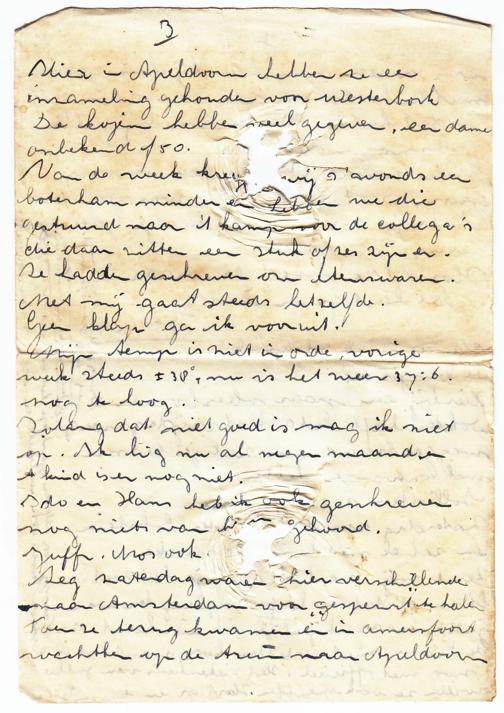 3
Hier in Apeldoorn hebben ze een
inzameling gehouden voor Westerbork
De kojen hebben veel gegeven, een dame
onbekend ƒ 50.
Van de week kreeg wij 's avonds een
boterham minder en hebben we die
gestuurd naar 't kamp voor de collega's
die daar zitten een stuk of zes zijn er.
Ze hadden geschreven om etenswaren.
Met mij gaat steeds hetzelfde.
Geen klap ga ik vooruit.
Mijn temp is niet in orde, vorige
week steeds ± 38°, nu is het weer 37:6.
nog te hoog.
Zolang dat niet goed is mag ik niet
op. Ik lig nu al negen maand en
't kind is er nog niet.
Ido en Hans heb ik ook geschreven
nog niets van gehoord.
Juffr. Mos ook.
Zeg zaterdag waren hier verschillende
naar Amsterdam voor „gesperrt" te halen
Toen ze terug kwamen en in Amersfoort
wachtten op de trein naar Apeldoorn